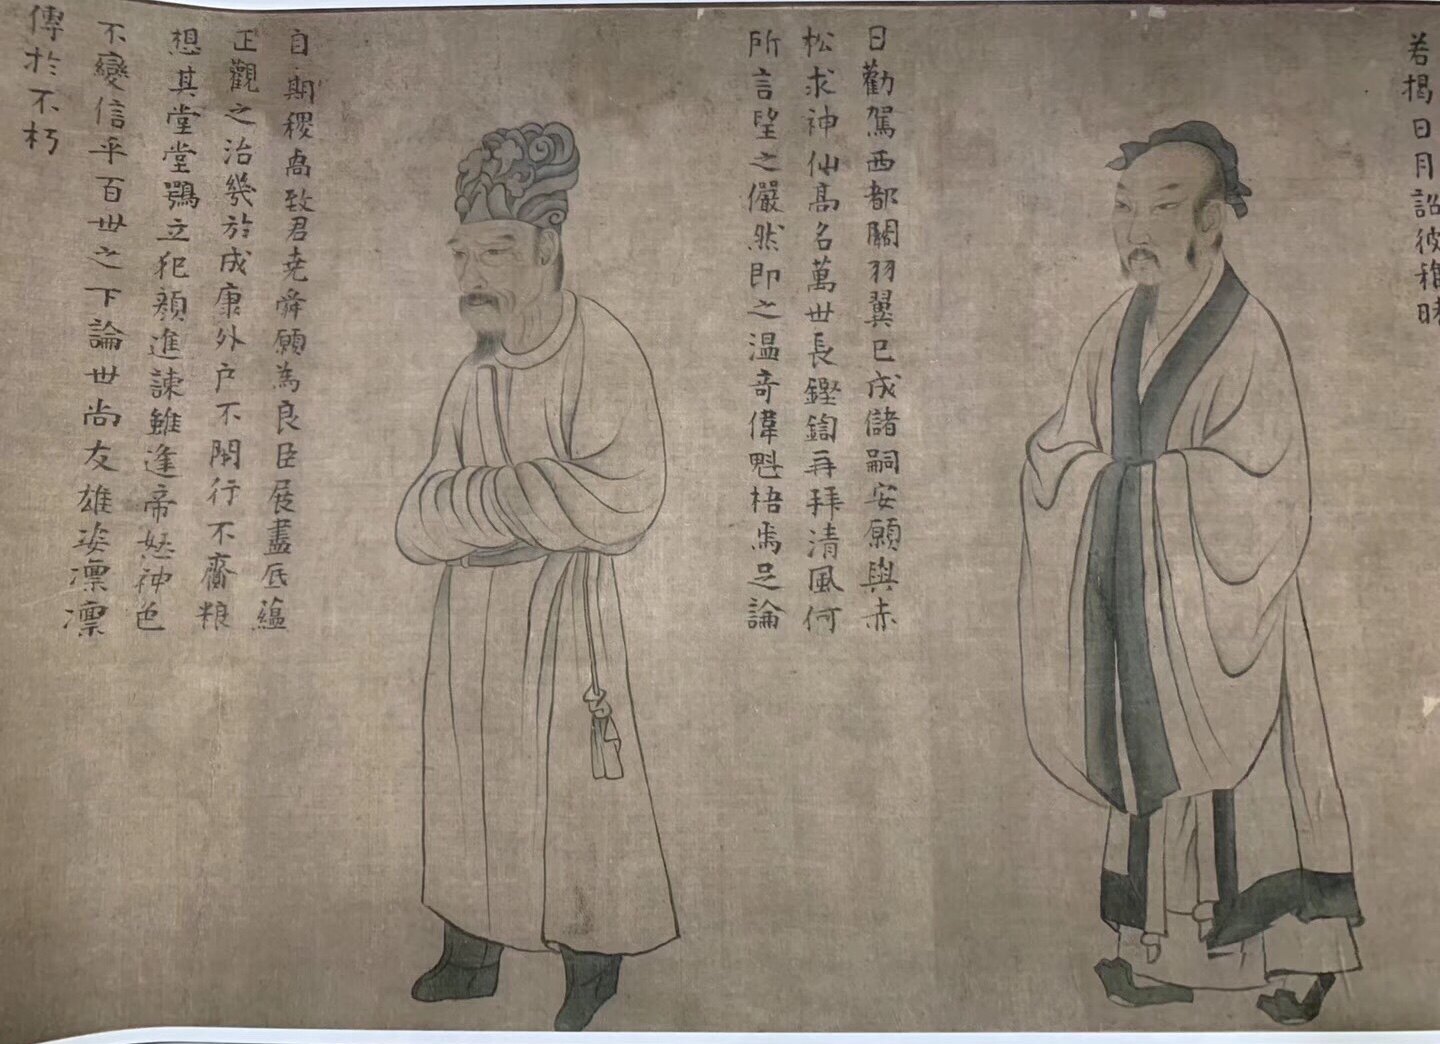 若揭日月詔彼
日勸駕西都關羽翼已成儲嗣安願與赤
松求神仙高名萬世長鏗鍧再拜清風何
所言望之儼然即之温奇偉魁梧焉足論
自期稷卨致君堯舜願為良臣展盡底藴
正觀之治幾於成康外户不閉行不齎粮
想其堂堂鶚立犯顔進諫雖逢帝怒神色
不變信乎百世之下論世尚友雄姿凛凛
傳於不朽